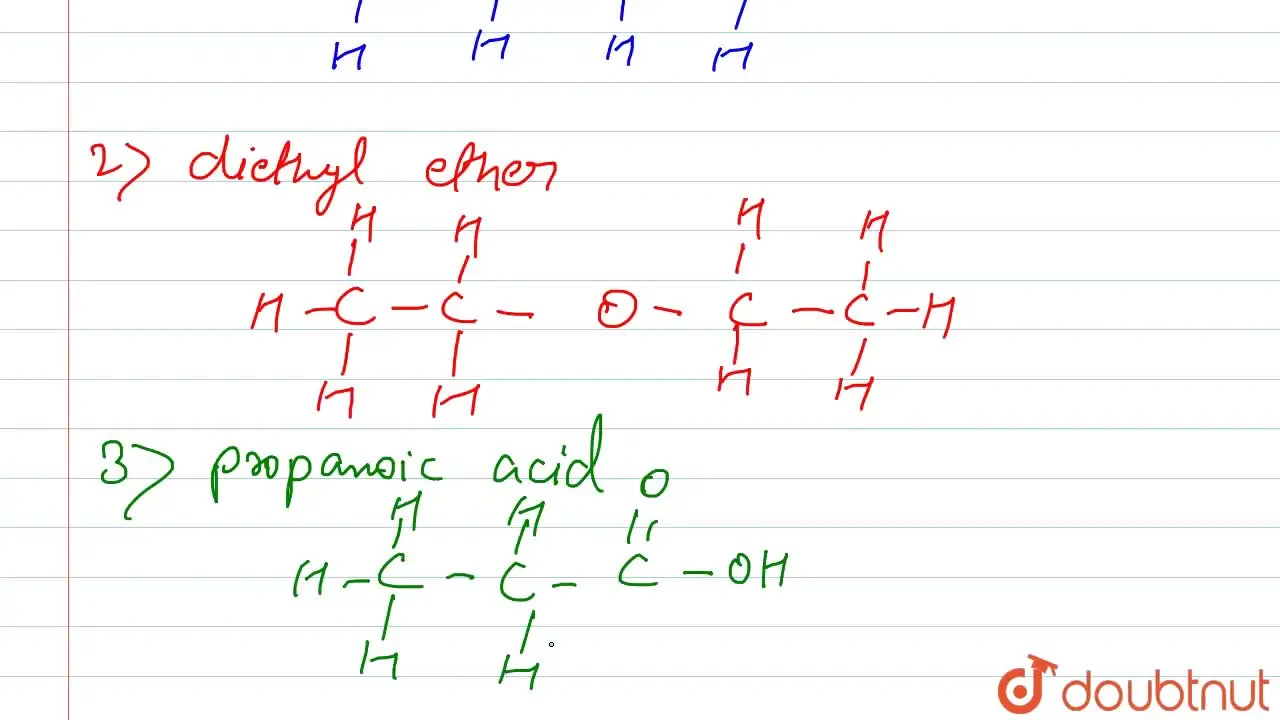 H H H H
2) diethyl ether
H H H H
H - C - C - O - C - C - H
H H H H
3) propanoic acid
H H O
H - C - C - C - OH
H H
doubtnut